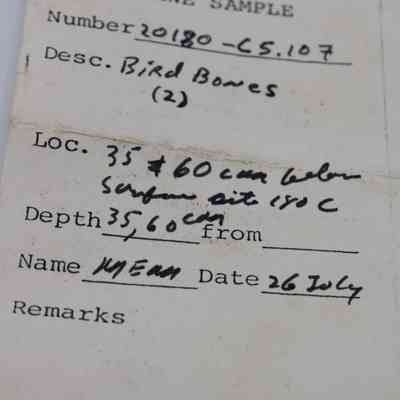 SAMPLE
Number 20180-C5.107
Desc. Bird Bones
(2)
Loc. 35 & 60 cm below
surface site 180 C
Depth 35, 60 cm from
Name Date 26 July
Remarks